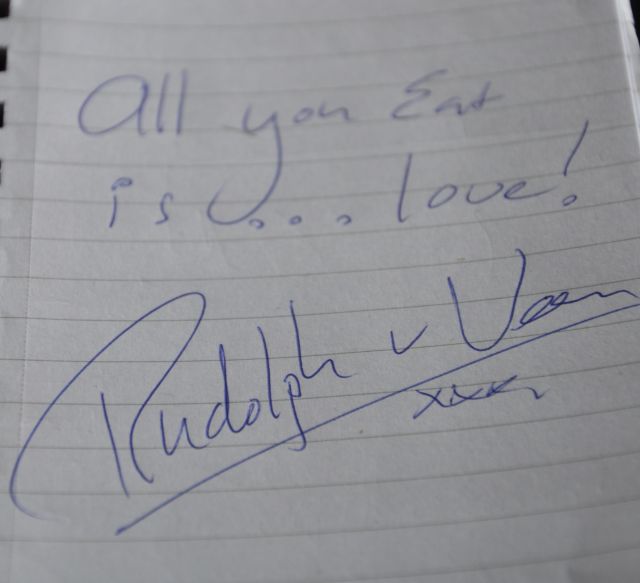 All you Eat
is... love!
Rudolph v Veen
xxx